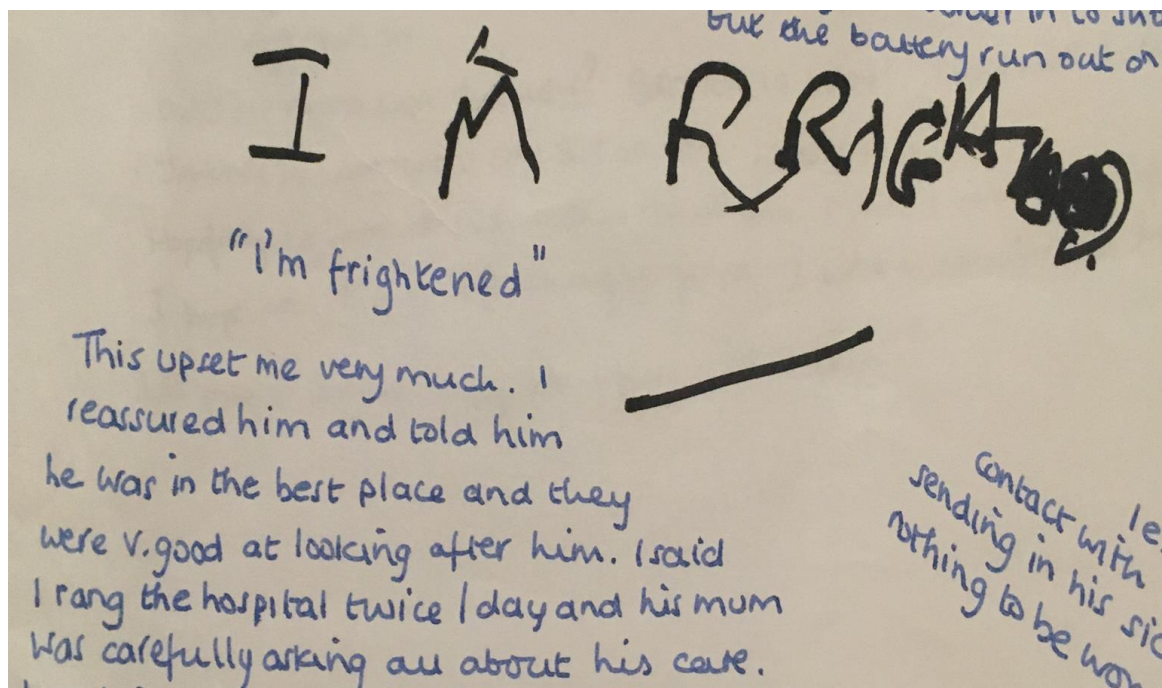 but the battery run out on
I'M FRIGHT
"I'm frightened"
This upset me very much. I
reassured him and told him
he was in the best place and they
were v.good at looking after him. I said
I rang the hospital twice/day and his mum
was carefully asking all about his care.
contact with
sending in his
nothing to be